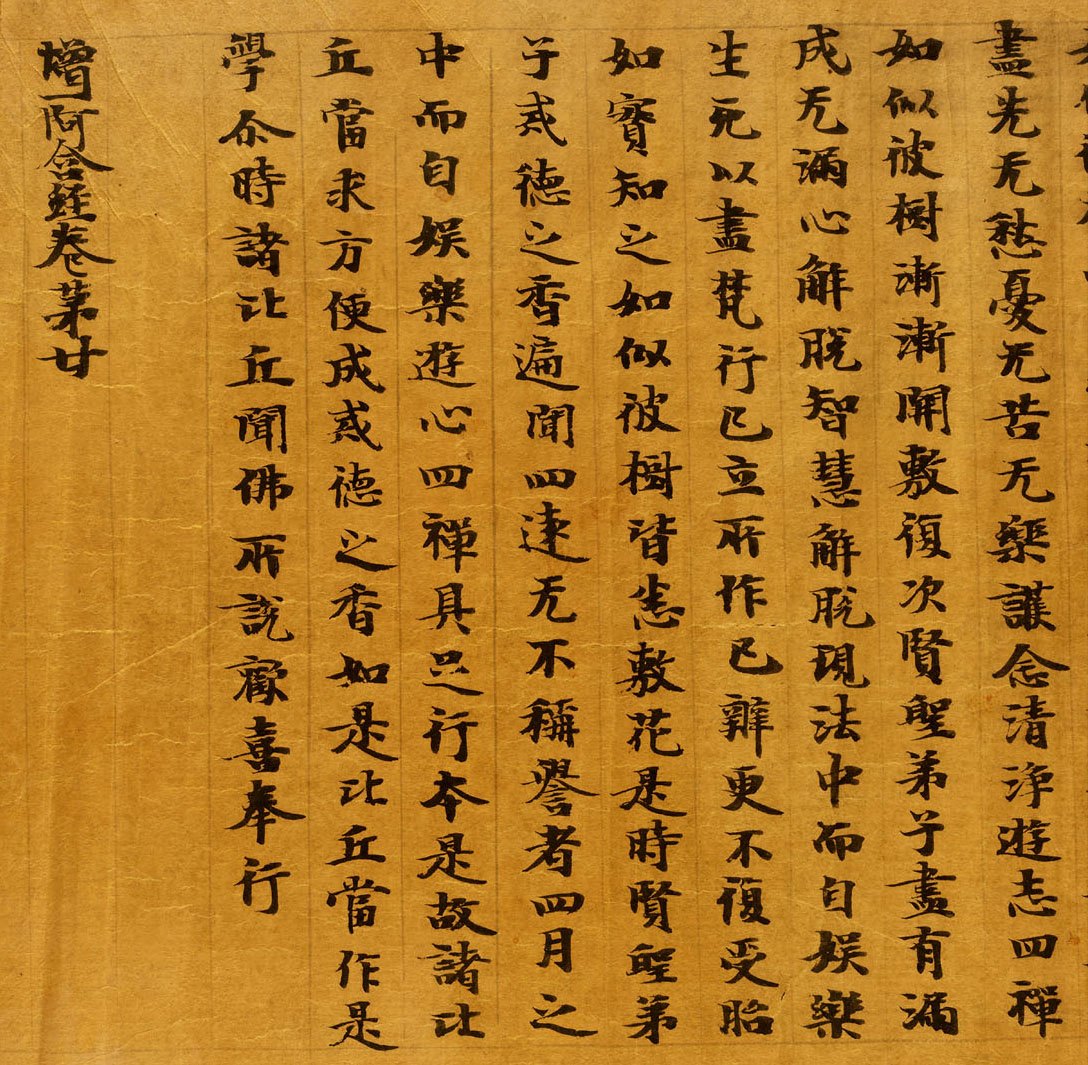 盡先无愁憂无苦无樂護念清淨遊志四禪
如似彼樹漸漸開敷復次賢聖弟子盡有漏
成无漏心解脫智慧解脫現法中而自娛樂
生死以盡梵行已立所作已辦更不復受胎
如實知之如似彼樹皆悉敷花是時賢聖弟
子戒德之香遍聞四遠无不稱譽者四月之
中而自娛樂遊心四禪具足行本是故諸比
丘當求方便成戒德之香如是比丘當作是
學尒時諸比丘聞佛所說歡喜奉行
增一阿含經卷第廿